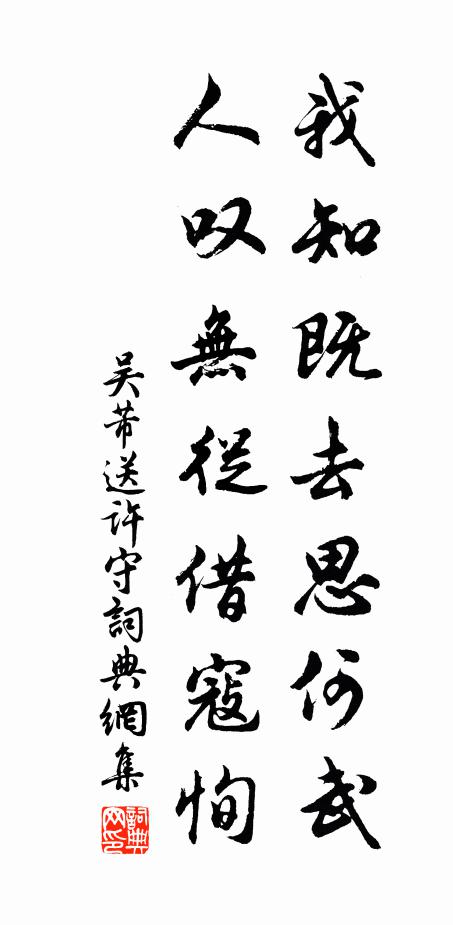 我知既去思何武
人叹無從借寇恂
吴芾送許守詞典網集
詞典网印